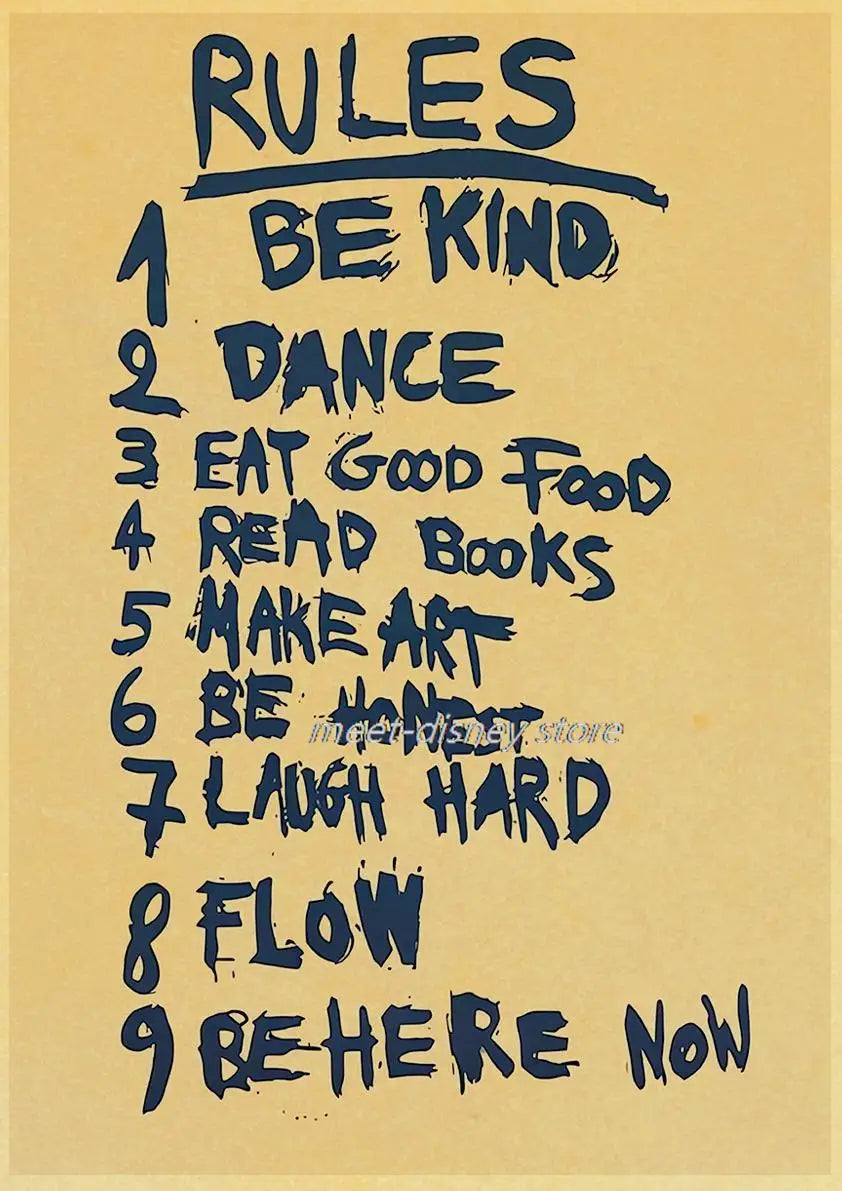 RULES
1 BE KIND
2 DANCE
3 EAT GOOD FOOD
4 READ BOOKS
5 MAKE ART
6 BE HONEST
meet-disney store
7 LAUGH HARD
8 FLOW
9 BE HERE NOW